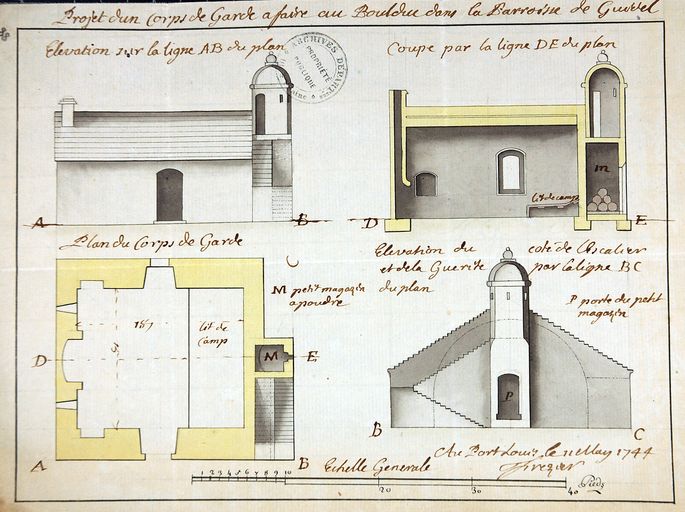 Projet d'un Corps de Garde a faire au Pouldu dans la Parroisse de Guidel
Elevation sur la ligne AB du plan
Coupe par la ligne DE du plan
ARCHIVES DEPART
PROPRIÉTÉ
PUBLIQUE
m
lit de camp
A
B
D
E
Plan du Corps de Garde
C
M petit magazin
a poudre
Elevation du coté de l'Escalier
et de la Guerite par la ligne BC
du plan
P porte du petit
magazin
15 p
lit de
camp
D
M
E
P
B
C
A
B
Au Port Louis le 11 May 1744
Frezier
Echelle Generale
1 2 3 4 5 6 7 8 9 10
20
30
40
Pieds